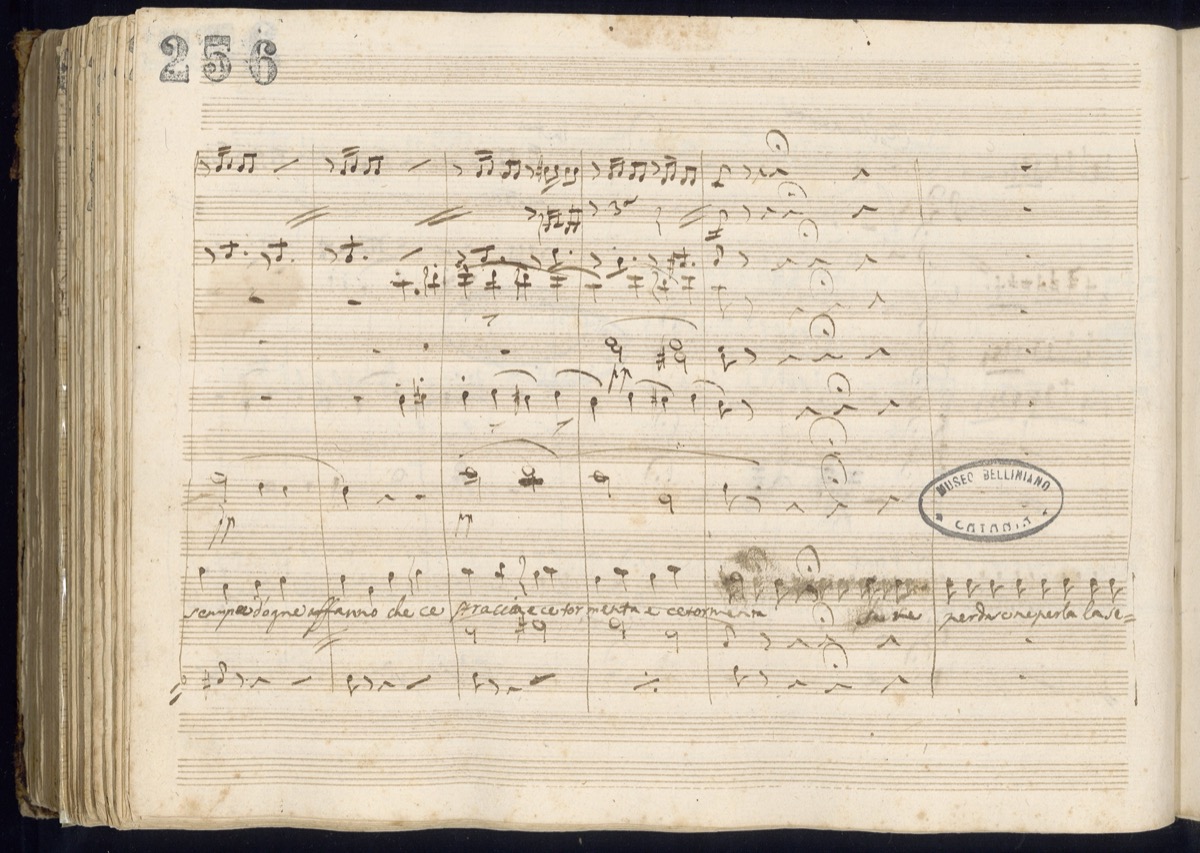 256
pp
MUSEO BELLINIANO
CATANIA
pp pp
sempre d'ogne affanno che ce straccia e ce tormenta e ce tormenta se ne perdisemeperla la se=